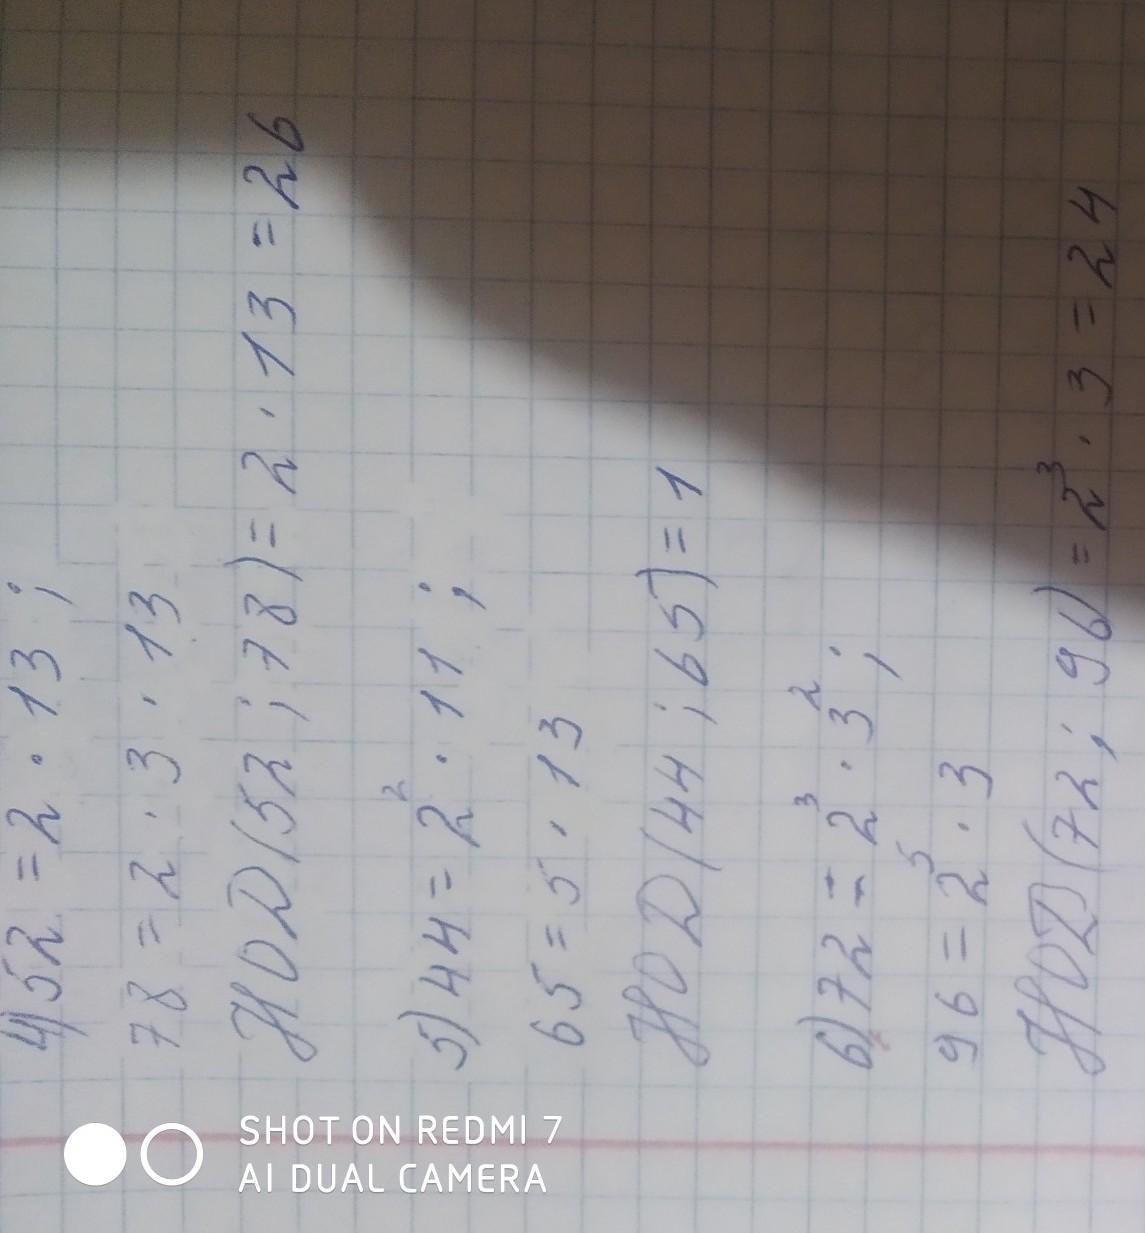 4) 52 = 2 · 13 ;
78 = 2 · 3 · 13
НОД (52 ; 78) = 2 · 13 = 26
5) 44 = 2² · 11 ;
65 = 5 · 13
НОД (44 ; 65) = 1
6) 72 = 2³ · 3² ;
96 = 2⁵ · 3
НОД (72 ; 96) = 2³ · 3 = 24
SHOT ON REDMI 7
AI DUAL CAMERA